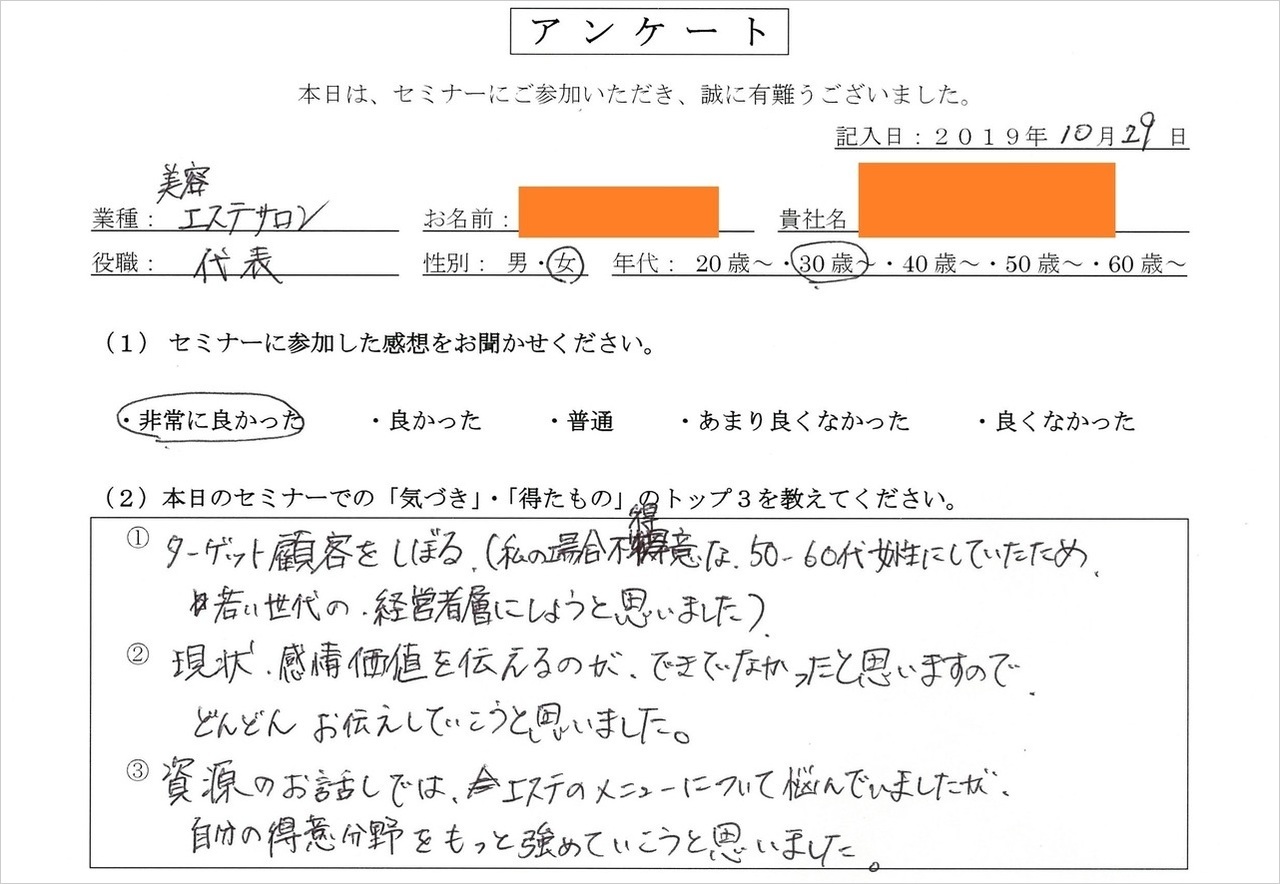 アンケート
本日は、セミナーにご参加いただき、誠に有難うございました。
記入日：２０１９年 10月29日
美容
業種： エステサロン お名前： 貴社名
役職： 代表 性別： 男・女 年代： 20歳～・30歳～・40歳～・50歳～・60歳～
（１） セミナーに参加した感想をお聞かせください。
・非常に良かった ・良かった ・普通 ・あまり良くなかった ・良くなかった
（２）本日のセミナーでの「気づき」・「得たもの」のトップ３を教えてください。
① ターゲット顧客をしぼる、(私の場合不得意な、50-60代女性にしていたため、
若い世代の、経営者層にしようと思いました)
② 現状、感情価値を伝えるのが、できでなかったと思いますので、
どんどんお伝えしていこうと思いました。
③ 資源のお話しでは、エステのメニューについて悩んでいましたが、
自分の得意分野をもっと強めていこうと思いました。